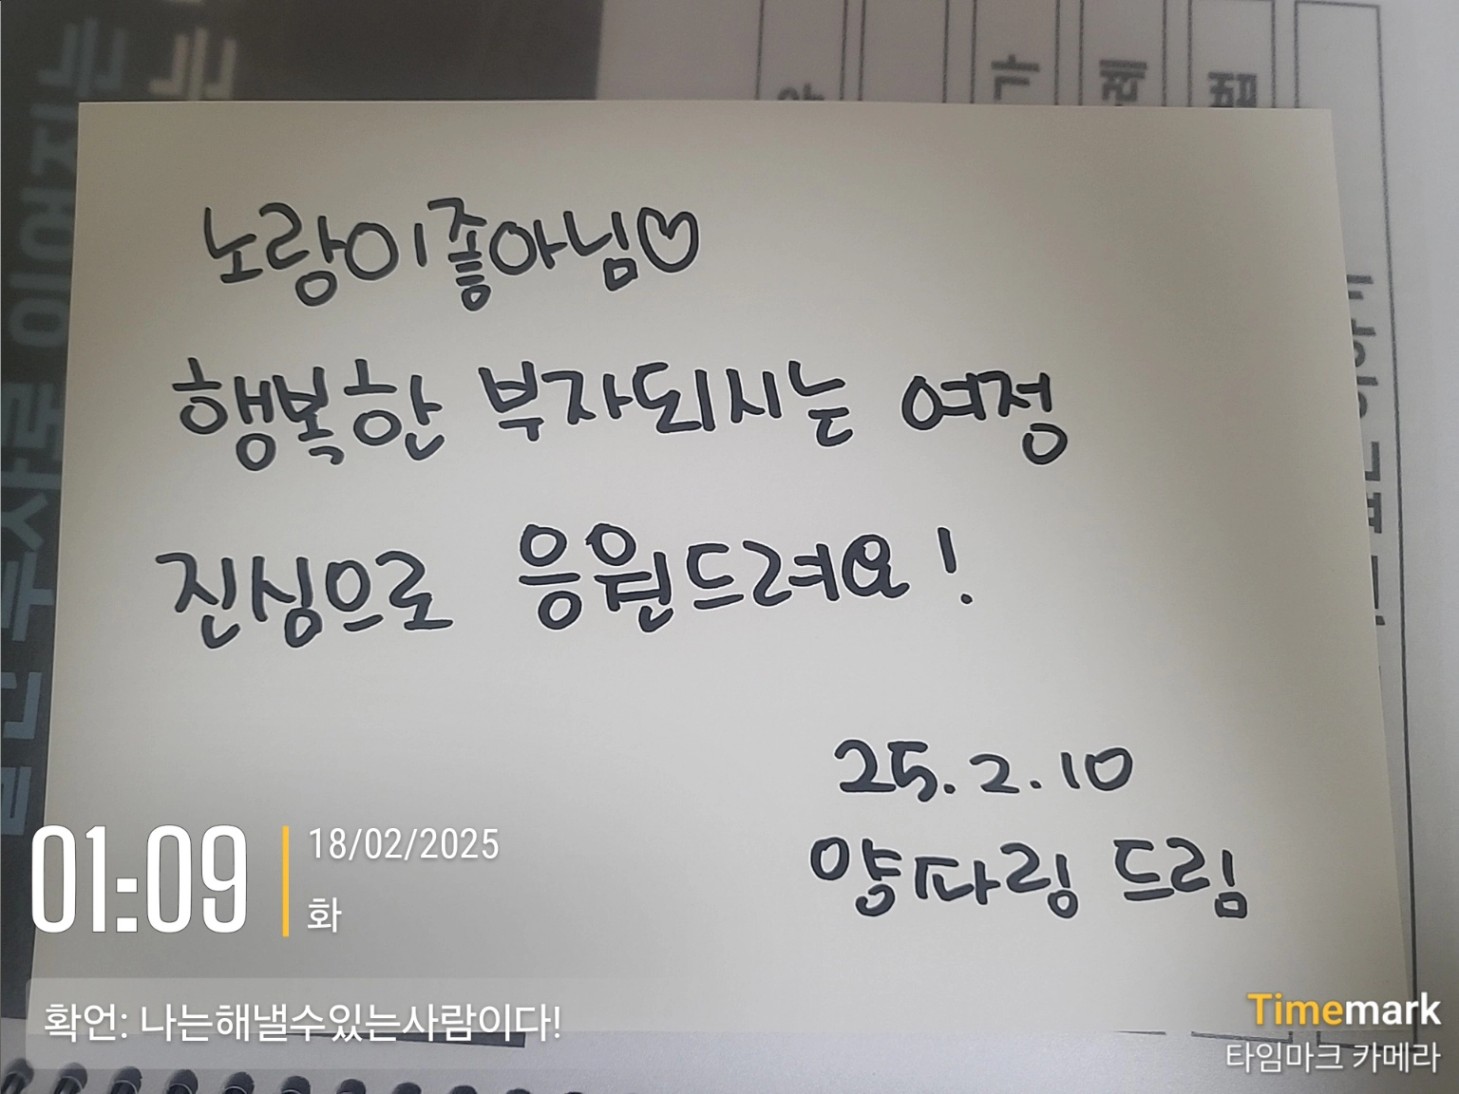 노랑이좋아님♡
행복한 부자되시는 여정
진심으로 응원드려요!
25.2.10
양따링 드림
01:09
18/02/2025
화
확언: 나는해낼수있는사람이다!
Timemark
타임마크 카메라
이어지는
가
례
법